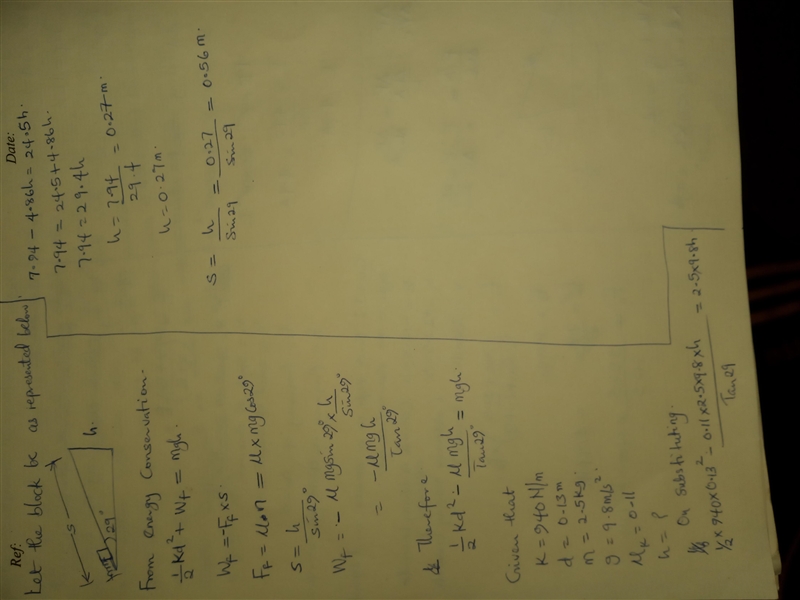 Ref:
Date:
Let the block be as represented below.
S
h.
29°
From energy Conservation.
½Kd² + Wf = mgh.
Wf = -Ff × S.
Ff = μ•n = μ × mg Cos29°
S = h / Sin29°
Wf = - μ mg sin 29° × h / Sin29°
= -μmgh / Tan29°
Therefore
½Kd² - μmgh / Tan29° = mgh.
Given that
K = 940 N/m
d = 0.13m
m = 2.5kg.
g = 9.8m/s².
μk = 0.11
h = ?
On substituting.
1/2 × 940 × 0.13² - 0.11×2.5×9.8×h / Tan29 = 2.5×9.8h
7.94 - 4.86h = 24.5h.
7.94 = 24.5 + 4.86h.
7.94 = 29.4h
h = 7.94 / 29.4 = 0.27m.
h = 0.27m.
S = h / Sin29 = 0.27 / Sin29 = 0.56m.